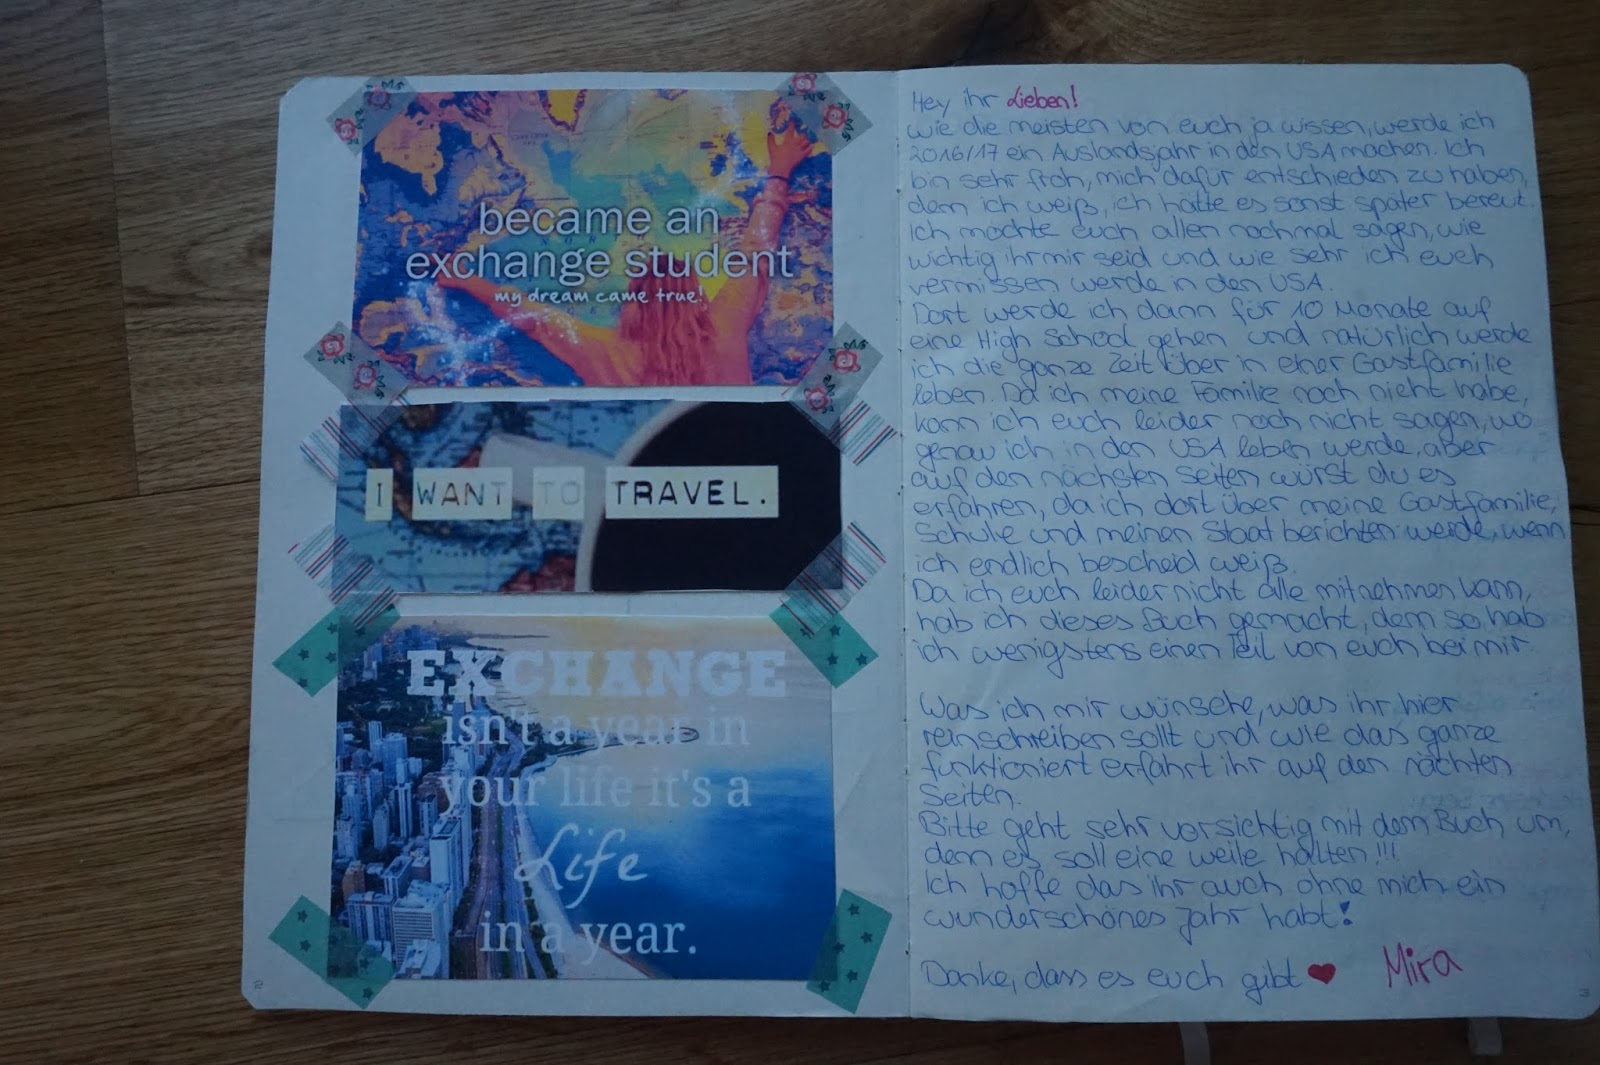 became an
exchange student
my dream came true!
I WANT TO TRAVEL.
EXCHANGE
isn't a year in
your life it's a
Life
in a year.
2
Hey ihr Lieben!
wie die meisten von euch ja wissen, werde ich
2016/17 ein Auslandsjahr in den USA machen. Ich
bin sehr froh, mich dafür entschieden zu haben,
denn ich weiß, ich hätte es sonst später bereut.
Ich möchte euch allen nochmal sagen, wie
wichtig ihr mir seid und wie sehr ich euch
vermissen werde in den USA.
Dort werde ich dann für 10 Monate auf
eine High School gehen und natürlich werde
ich die ganze Zeit über in einer Gastfamilie
leben. Da ich meine Familie noch nicht habe,
kann ich euch leider noch nicht sagen, wo
genau ich in den USA leben werde, aber
auf den nächsten Seiten würst du es
erfahren, da ich dort über meine Gastfamilie,
Schule und meinen Staat berichten werde, wenn
ich endlich bescheid weiß.
Da ich euch leider nicht alle mitnehmen kann,
hab ich dieses Buch gemacht, denn so hab
ich wenigstens einen Teil von euch bei mir.
Was ich mir wünsche, was ihr hier
reinschreiben sollt und wie das ganze
funktioniert erfahrt ihr auf den nächten
Seiten.
Bitte geht sehr vorsichtig mit dem Buch um,
denn es soll eine weile halten!!!
Ich hoffe das ihr auch ohne mich ein
wunderschönes Jahr habt!
Danke, dass es euch gibt ♥ Mira
3